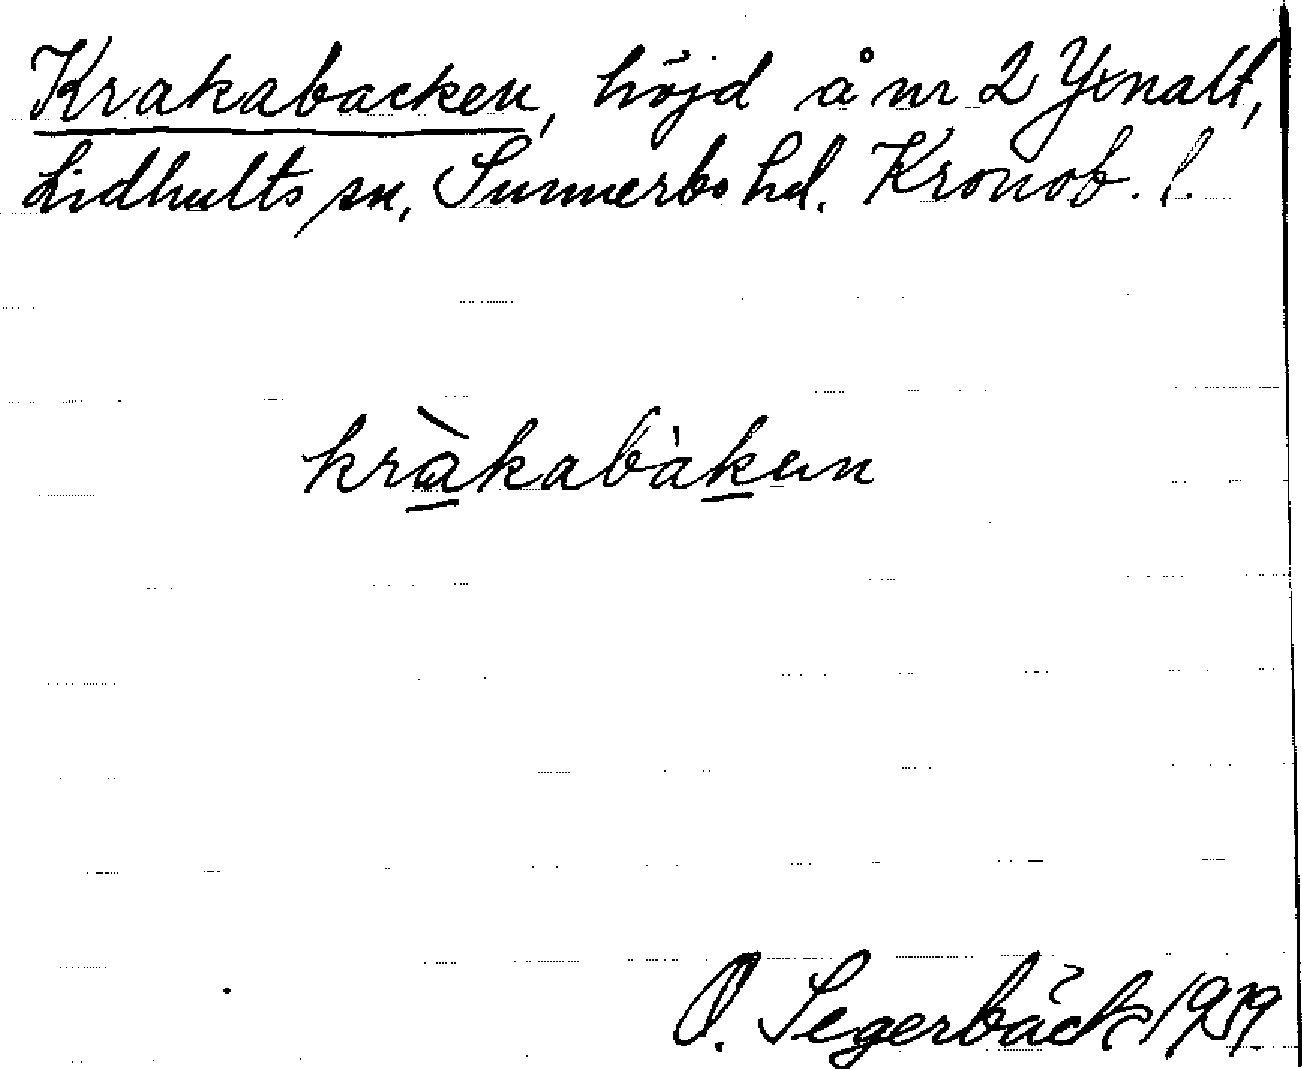 Krakabacken, höjd å nr 2 Yxnalt,
Lidhults sn, Sunnerbo hd. Kronob. l.
kràkabàken
O. Segerbäck 1919